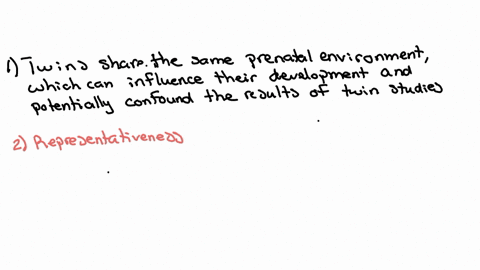 1) Twins share the same prenatal environment,
which can influence their development and
potentially confound the results of twin studies
2) Representativeness